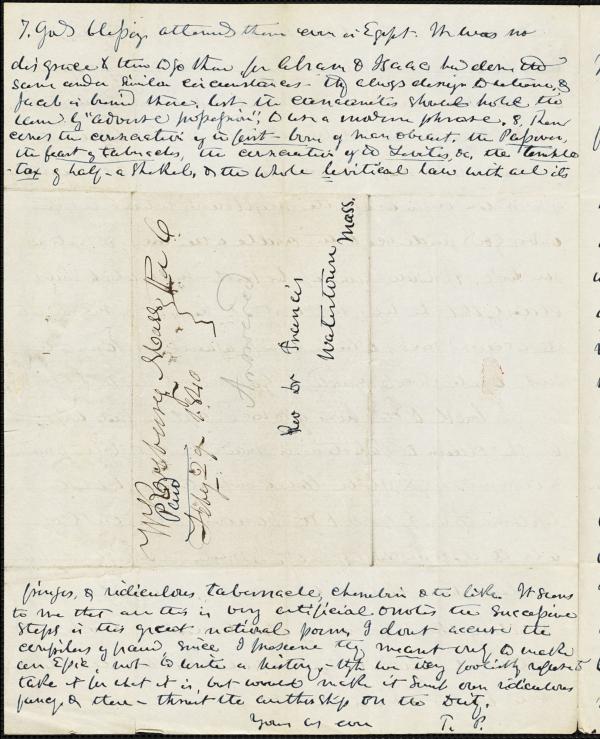 7. God's blessing attends them even in Egypt. It was no
disgrace to them to go there for Abram & Isaac had done the
same under similar circumstances - they always design to return, &
Jacob is buried there, lest the Canaanites should hold the
land by "adverse possession", to use a modern phrase. 8. Then
comes the consecration of the first-born of man & beast, the Passover,
the feast of tabernacles, the consecration of the Levites, &c, the temple
-tax of half-a Shekel, & the whole Levitical law with all its
W. Roxbury Mass
Paid
Feby 29 1840
Answered
Rev Dr Francis
Watertown
Mass.
fringes, & ridiculous tabernacle, cherubim & the like. It seems
to me that all this is very artificial & notes the successive
steps in this great national poem, I dont accuse the
compilers of fraud, since I presume they meant only to make
an Epic, not to write a history, - tho we very foolishly refuse to
take it for what it is but would make it suit our ridiculous
fancy & then - thrust the authorship on the Deity.
Yours as ever
T. P.